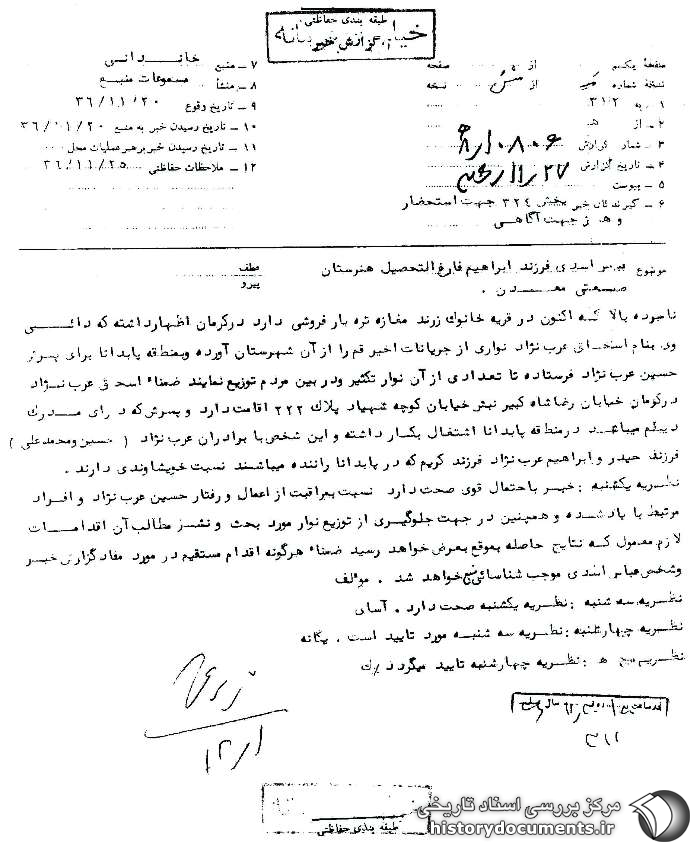 طبقه بندی حفاظتی
گزارش خبر
صفحه یکم از صفحه
نسخه شماره از نسخه
۱ ـ به ۳۱۲
۲ ـ از ه‍
۳ ـ شماره گزارش ۸۱۰۸۰۶
۴ ـ تاریخ گزارش
۵ ـ پیوست
۶ ـ گیرندگان خبر بخش ۳۲۴ جهت استحضار
و ه‍ جهت آگاهی
۷ ـ منبع
۸ ـ منشأ مسموعات منبع
۹ ـ تاریخ وقوع ۳۶/۱۱/۲۰
۱۰ ـ تاریخ رسیدن خبر به منبع ۳۶/۱۱/۲۰
۱۱ ـ تاریخ رسیدن خبر برهبر عملیات محل
۱۲ ـ ملاحظات حفاظتی ۳۶/۱۱/۲۵
موضوع اسدی فرزند ابراهیم فارغ التحصیل هنرستان
صنعتی معدن .
عطف
پیرو
نامبرده بالا که اکنون در قریه خانوک زرند مغازه تره بار فروشی دارد در کرمان اظهارداشته که دائی
وی بنام اسحاق عرب نژاد نواری از جریانات اخیر قم را از آن شهرستان آورده و بمنطقه پابدانا برای پسرش
حسین عرب نژاد فرستاده تا تعدادی از آن نوار تکثیر و در بین مردم توزیع نمایند ضمناً اسحق عرب نژاد
در کرمان خیابان رضاشاه کبیر نبش خیابان کوچه شهیاد پلاک ۲۲۲ اقامت دارد و پسرش که دارای مدرک
دیپلم میباشد در منطقه پابدانا اشتغال بکار داشته و این شخص با برادران عرب نژاد ( حسین و محمدعلی )
فرزند حیدر و ابراهیم عرب نژاد فرزند کریم که در پابدانا راننده میباشند نسبت خویشاوندی دارند .
نظریه یکشنبه : خبر باحتمال قوی صحت دارد نسبت بمراقبت از اعمال و رفتار حسین عرب نژاد و افراد
مرتبط با یادشده و همچنین در جهت جلوگیری از توزیع نوار مورد بحث و نشر مطالب آن اقدامات
لازم معمول که نتایج حاصله بموقع بعرض خواهد رسید ضمناً هرگونه اقدام مستقیم در مورد مفاد گزارش خبر
و شخص عباس اسدی موجب شناسائی منبع خواهد شد . مؤلف
نظریه سه شنبه : نظریه یکشنبه صحت دارد . آسای
نظریه چهارشنبه : نظریه سه شنبه مورد تایید است . یگانه
نظریه ه‍ : نظریه چهارشنبه تایید میگردد
۳۱۲
۱۲/۱
طبقه بندی حفاظتی
مرکز بررسی اسناد تاریخی
historydocuments.ir